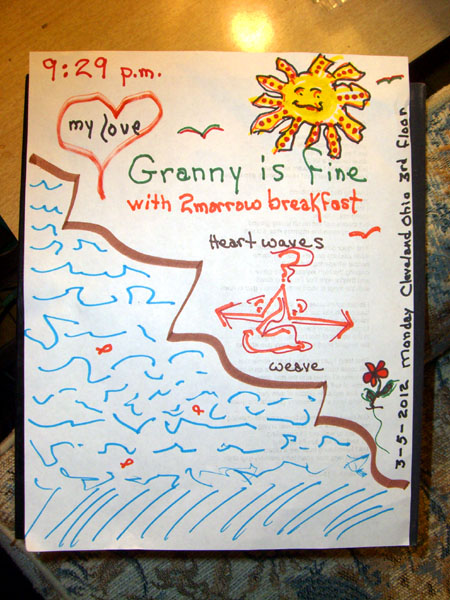 9:29 p.m.
my love
Granny is fine
with 2morrow breakfast
Heart waves
weave
3-5-2012 Monday Cleveland Ohio 3rd floor